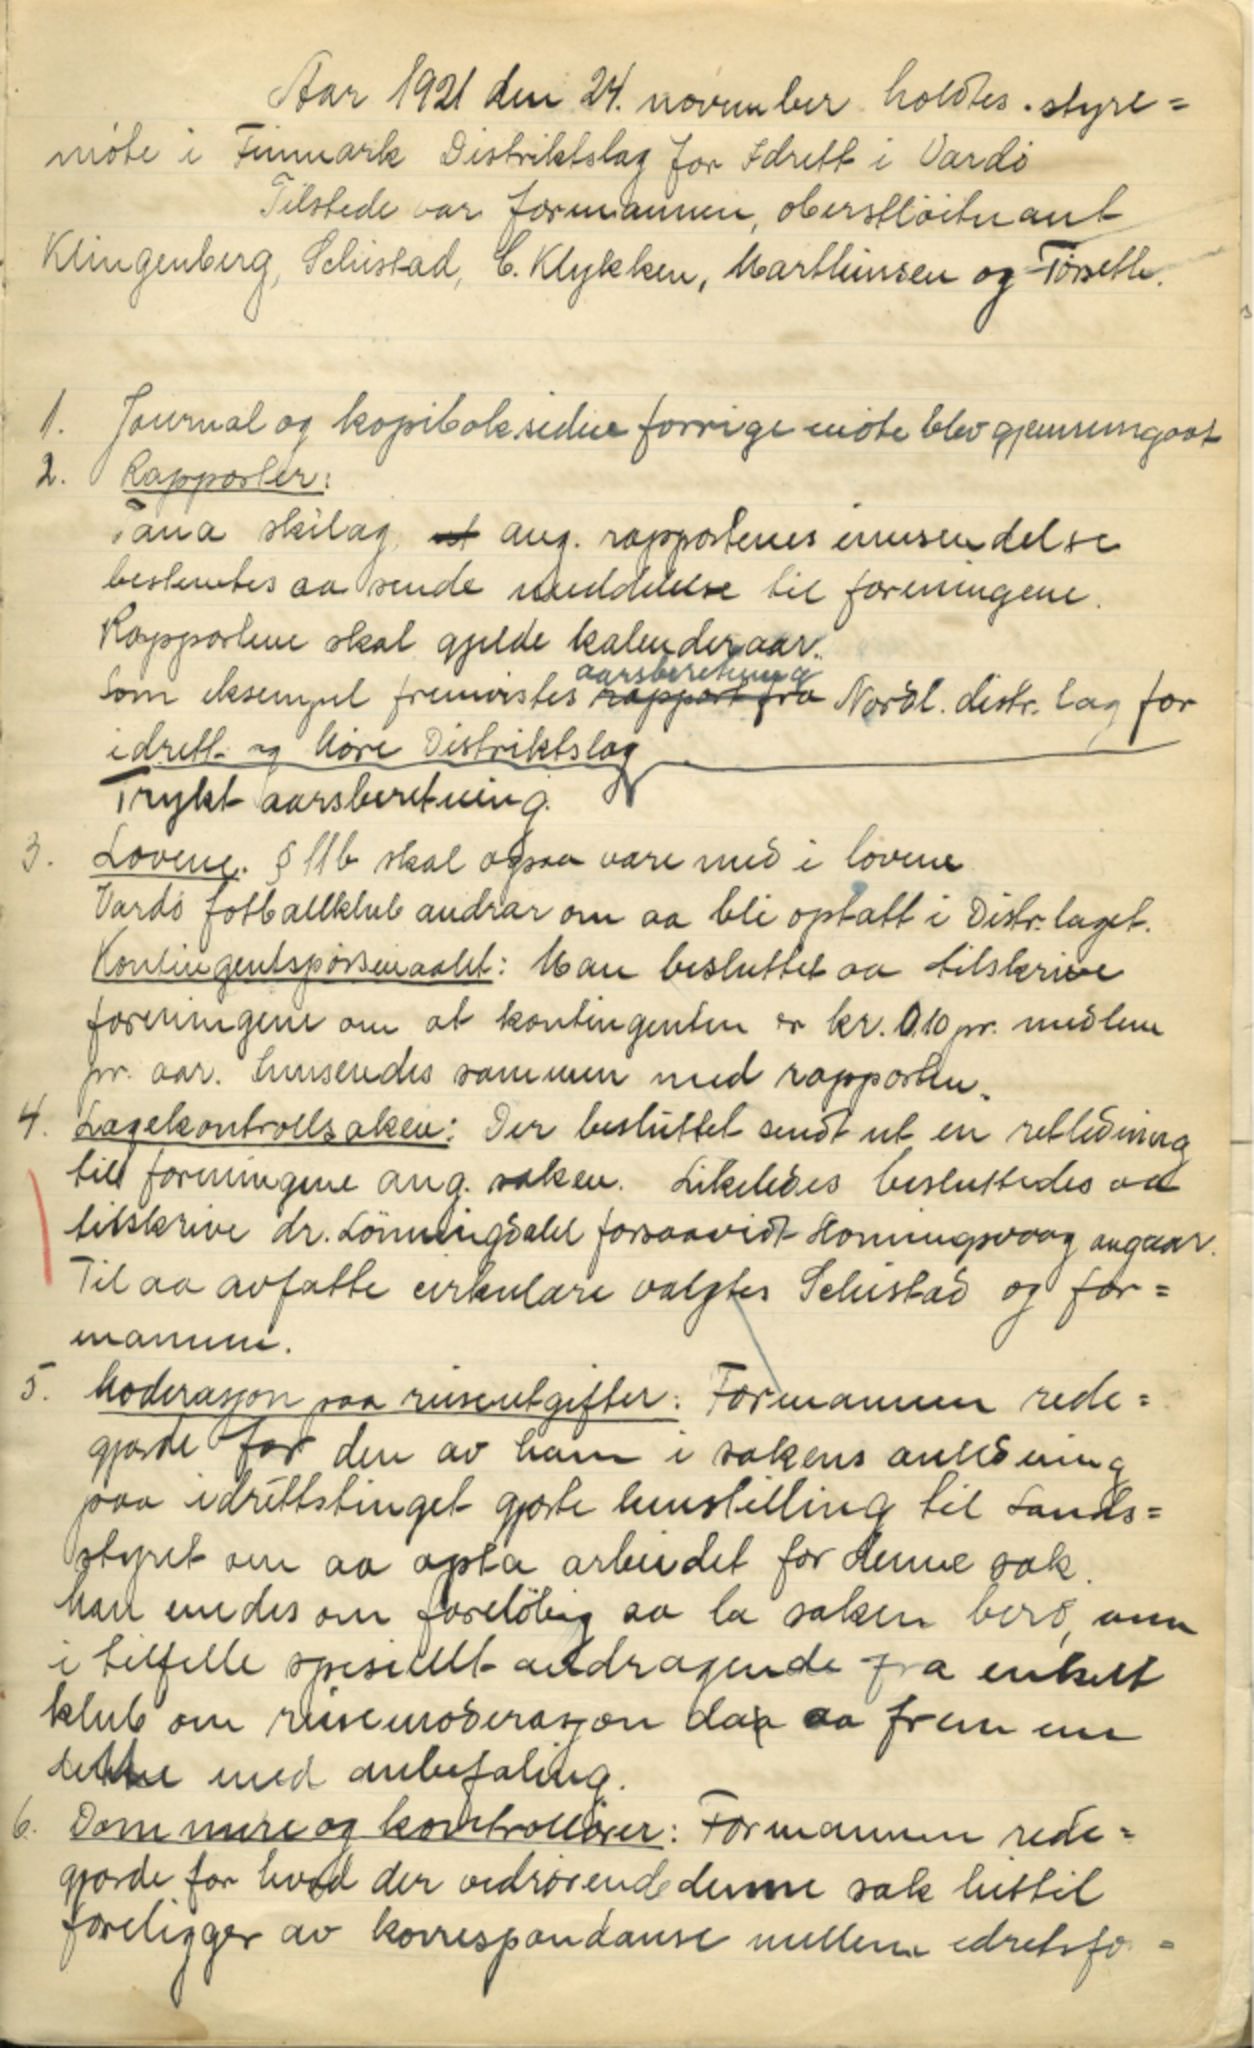 Aar 1921 den 24. november holdtes styre=
möte i Finmark Distriktslag for Idrett i Vardö
Tilstede var formannen, oberstlöitnant
Klingenberg, Schistad, C. Klykken, Marthinsen og Torseth.
1. Journal og kopibok siden forrige möte blev gjennemgaat
2. Rapporter:
Tana skilag, ang. rapportenes innsendelse
bestemtes aa sende meddelelse til foreningene.
Rapportene skal gjelde kalenderaar.
aarsberetning
Som eksempel fremvistes rapport fra Nordl. distr. lag for
idrett og Möre Distriktslag
Trykt aarsberetning.
3. Lovene. § 11b skal ogsaa være med i lovene
Vardö fotballklub andrar om aa bli optatt i Distr. laget.
Kontingentspörsmaalet: Man besluttet aa tilskrive
foreningene om at kontingenten er kr. 0.10 pr. medlem
pr. aar. Innsendes sammen med rapporten.
4. Lægekontrollsaken: Der besluttet sendt ut en retledning
till foreningene ang. saken. Likeledes besluttedes aa
tilskrive dr. Lönningdalel forsaavidt Honningsvaag angaar.
Til aa avfatte cirkulære valgtes Schistad og for=
mannen.
5. Moderasjon paa reiseutgifter: Formannen rede=
gjorde for den av ham i sakens anledning
paa idrettstinget gjorte henstilling til Lands=
styret om aa opta arbeidet for denne sak.
Man enedes om foreløbig aa la saken bero, men
i tilfelle spesiellt andragende fra enkelt
klub om reisemoderasjon da aa frem
med anbefaling.
6. Dommere og kontrollörer: Formannen rede=
gjorde for hvad der vedrörende denne sak hittil
foreligger av korrespondanse mellem idretsfo=